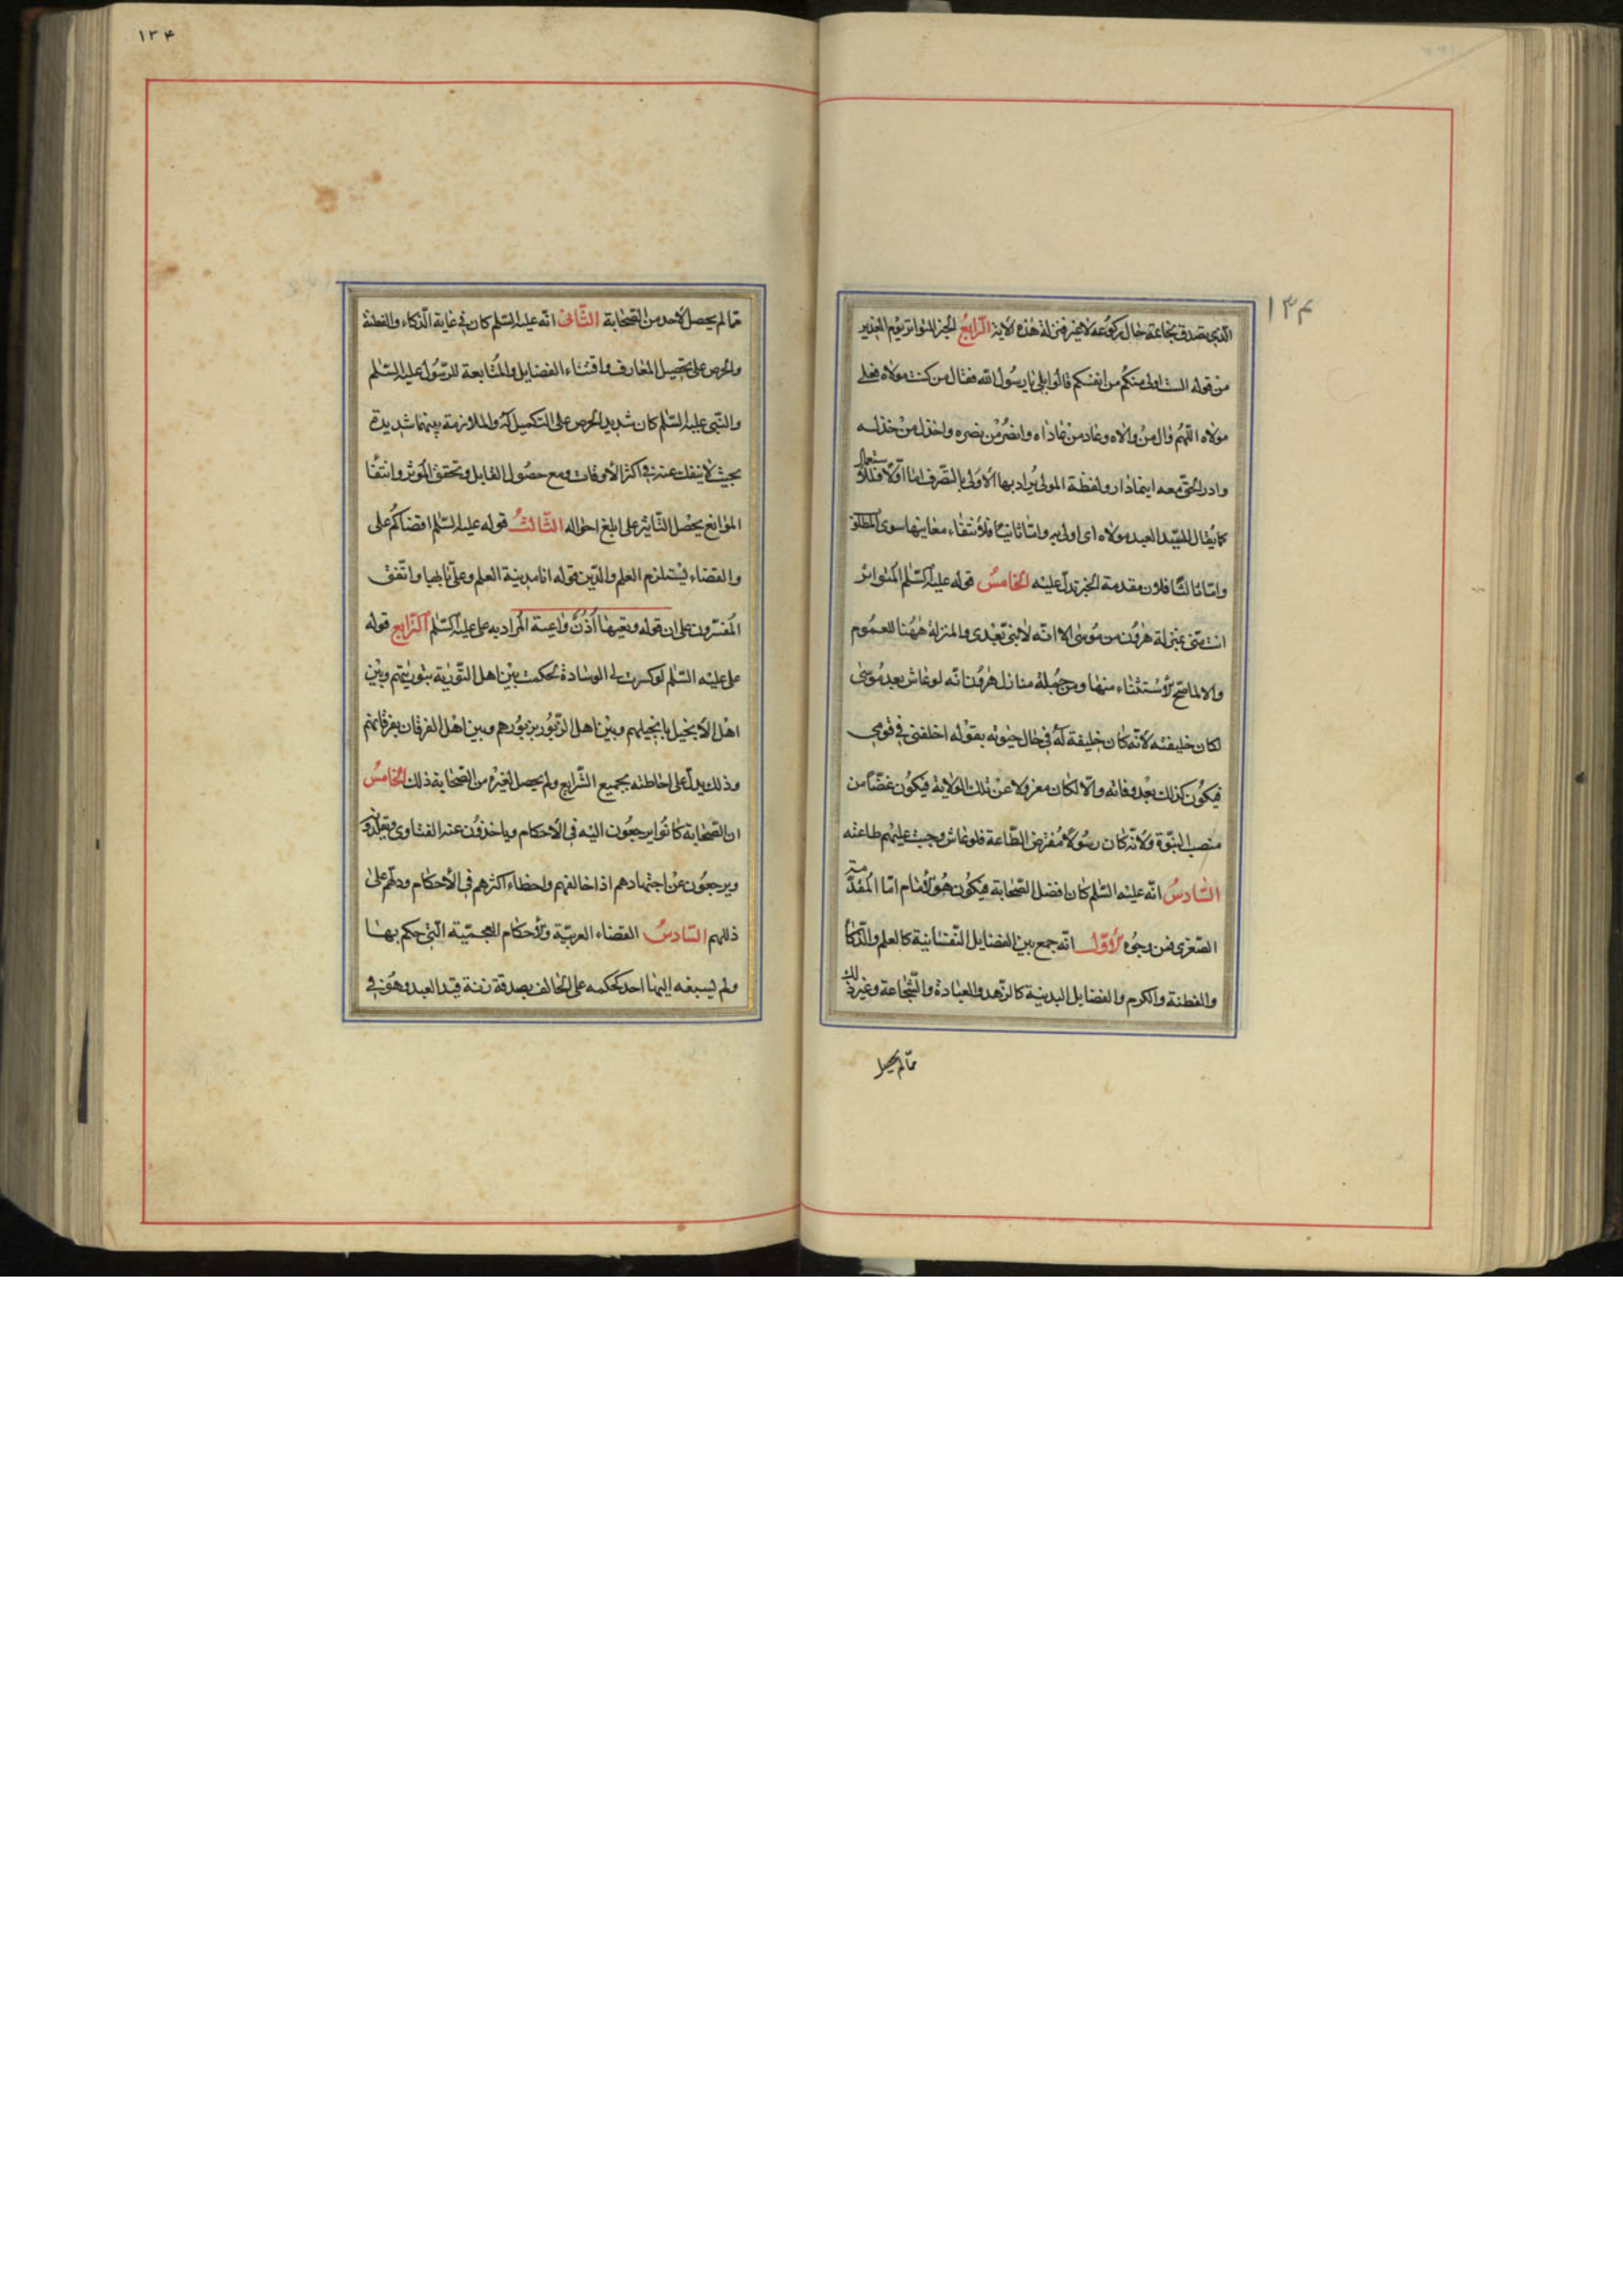 ۱۳۴
الذي تصدق بخاتمه حال ركوعه لا غير فنزلت هذه الآية الرابع الخبر المتواتر يوم الغدير
من قوله الست اولى منكم من انفسكم قالوا بلى يا رسول الله فقال من كنت مولاه فعلي
مولاه اللهم وال من والاه وعاد من عاداه وانصر من نصره واخذل من خذله
وادر الحق معه اينما دار ولفظة المولى يراد بها الاولى بالتصرف اما اولا فللاستعمال
كما يقال لسيد العبد مولاه اى اولى به واما ثانيا فلانتفاء معانيها سوى المطلوب
واما ثالثا فلان مقدمة الخبر تدل عليه الخامس قوله عليه السلم المتواتر
انت منى بمنزلة هرون من موسى الا انه لا نبى بعدى والمنزلة ههنا للعموم
والا لما صح الاستثناء منها ومن جملة منازل هرون انه لو عاش بعد موسى
لكان خليفته لانه كان خليفة له في حال حيوته بقوله اخلفنى في قومي
فيكون كذلك بعد وفاته والا لكان معزولا عن تلك الولاية فيكون غضا من
منصب النبوة ولانه كان رسولا مفترض الطاعة فلو عاش وجبت عليهم طاعته
السادس انه عليه السلم كان افضل الصحابة فيكون هو الامام اما المقدمة
الصغرى فمن وجوه الاول انه جمع بين الفضايل النفسانية كالعلم والذكاء
والفطنة والكرم والفضايل البدنية كالزهد والعبادة والشجاعة وغير ذلك
مما لم يحصل
۱۳۴
مما لم يحصل لاحد من الصحابة الثانى انه عليه السلم كان في غاية الذكاء والفطنة
والحرص على تحصيل المعارف واقتناء الفضايل والمتابعة للرسول عليه السلم
والنبى عليه السلم كان شديد الحرص على التكميل له والملازمة بينهما شديدة
بحيث لا ينفك عنه في اكثر الاوقات ومع حصول القابل وتحقق المؤثر وانتفا
الموانع يحصل التاثير على ابلغ احواله الثالث قوله عليه السلم اقضاكم على
والقضاء يستلزم العلم والدين قوله انا مدينة العلم وعلى بابها واتفق
المفسرون على ان قوله وتعيها اذن واعية المراد به على عليه السلم الرابع قوله
على عليه السلم لو كسرت لى الوسادة لحكمت بين اهل التورية بتوريتهم وبين
اهل الانجيل بانجيلهم وبين اهل الزبور بزبورهم وبين اهل الفرقان بفرقانهم
وذلك يدل على احاطته بجميع الشرايع ولم يحصل لغيره من الصحابة ذلك الخامس
ان الصحابة كانوا يرجعون اليه في الاحكام وياخذون عنه الفتاوى ويقلدوه
ويرجعون عن اجتهادهم اذا خالفهم واخطاء اكثرهم في الاحكام ودلهم على
زللهم السادس القضاء الغريبة والاحكام العجيبة التي حكم بها
ولم يسبقه اليها احد كحكمه على الحالف بصدقة زنة قيد العبد وهو في